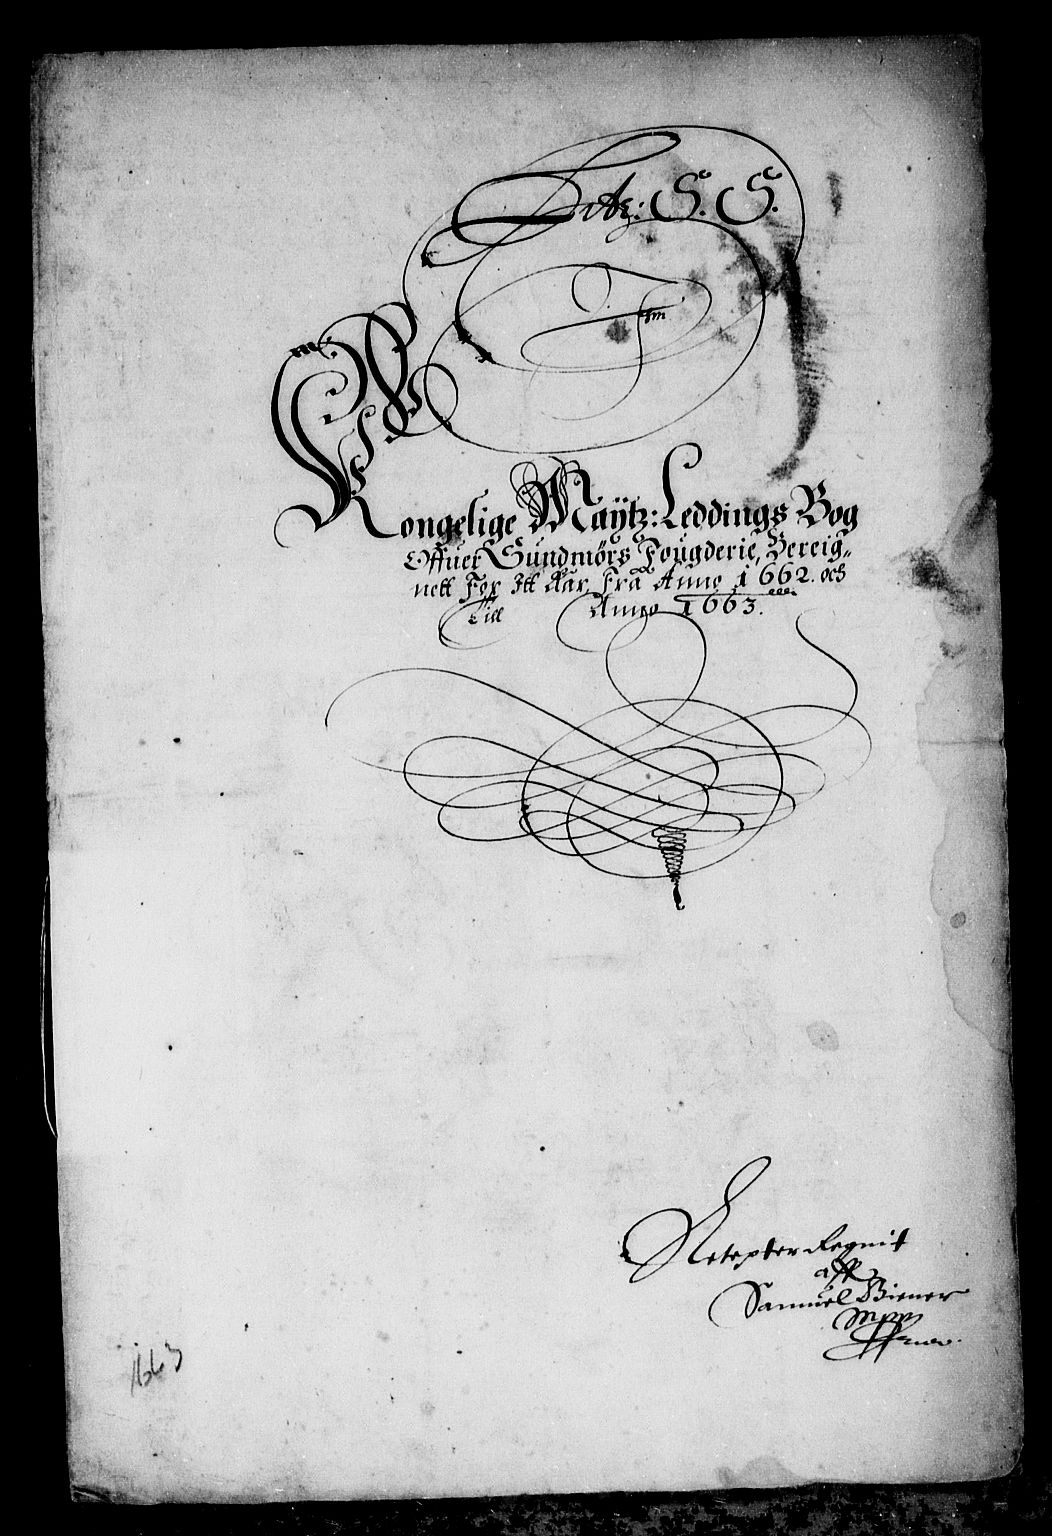 Litz: S. S.
Kongelige Maÿtz: Leddings Bog
Offuer Sundmörs Fougderie, Bereig„
nett For Itt Aar, Fra Anno 1662. och
Till Anno 1663.
aff
Samuel Biener
Mpp
1663